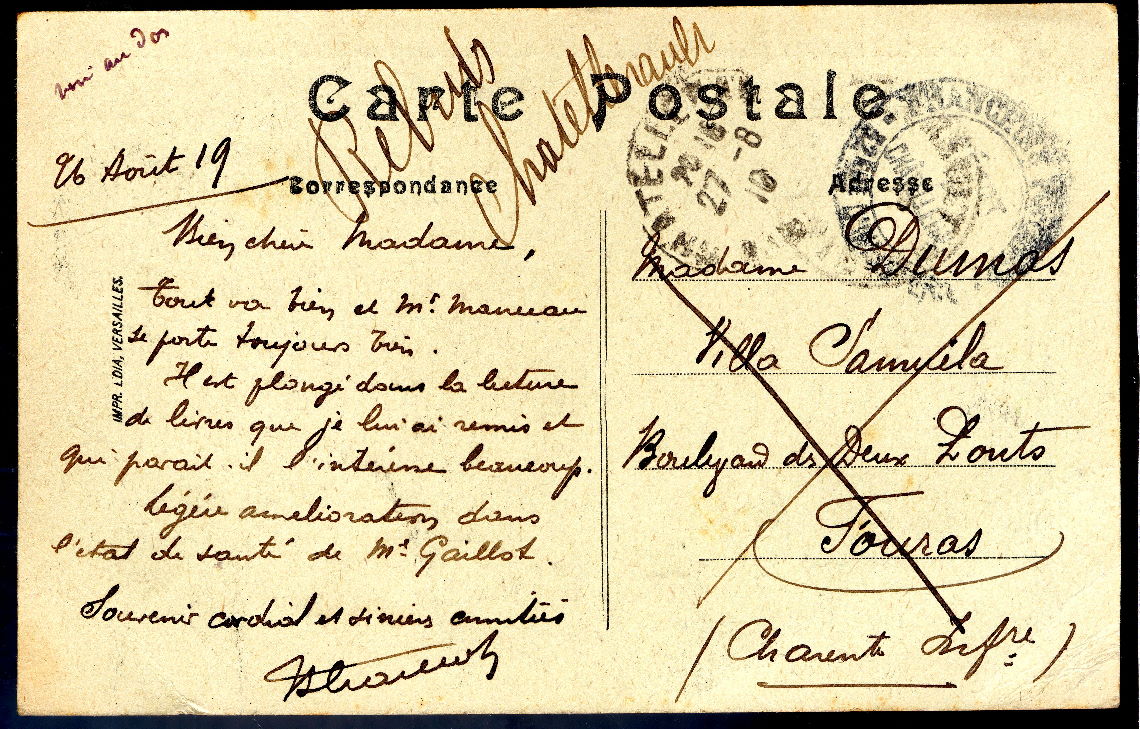 voir au dos
Rebuts
Chatellerault
Carte Postale
26 Août 19
Correspondance
Adresse
Bien chère Madame,
Tout va bien et Mr. Manceau
se porte toujours bien.
Il est plongé dans la lecture
de livres que je lui ai remis et
qui parait-il l'intéresse beaucoup.
Légère amelioration dans
l'état de santé de Mr Gaillot.
Souvenir cordial et sincères amitiés
IMPR. LDIA, VERSAILLES.
Madame Dumas
Villa
Boulevard des Deux Ponts
Fouras
(Charente Infre)
27 -8